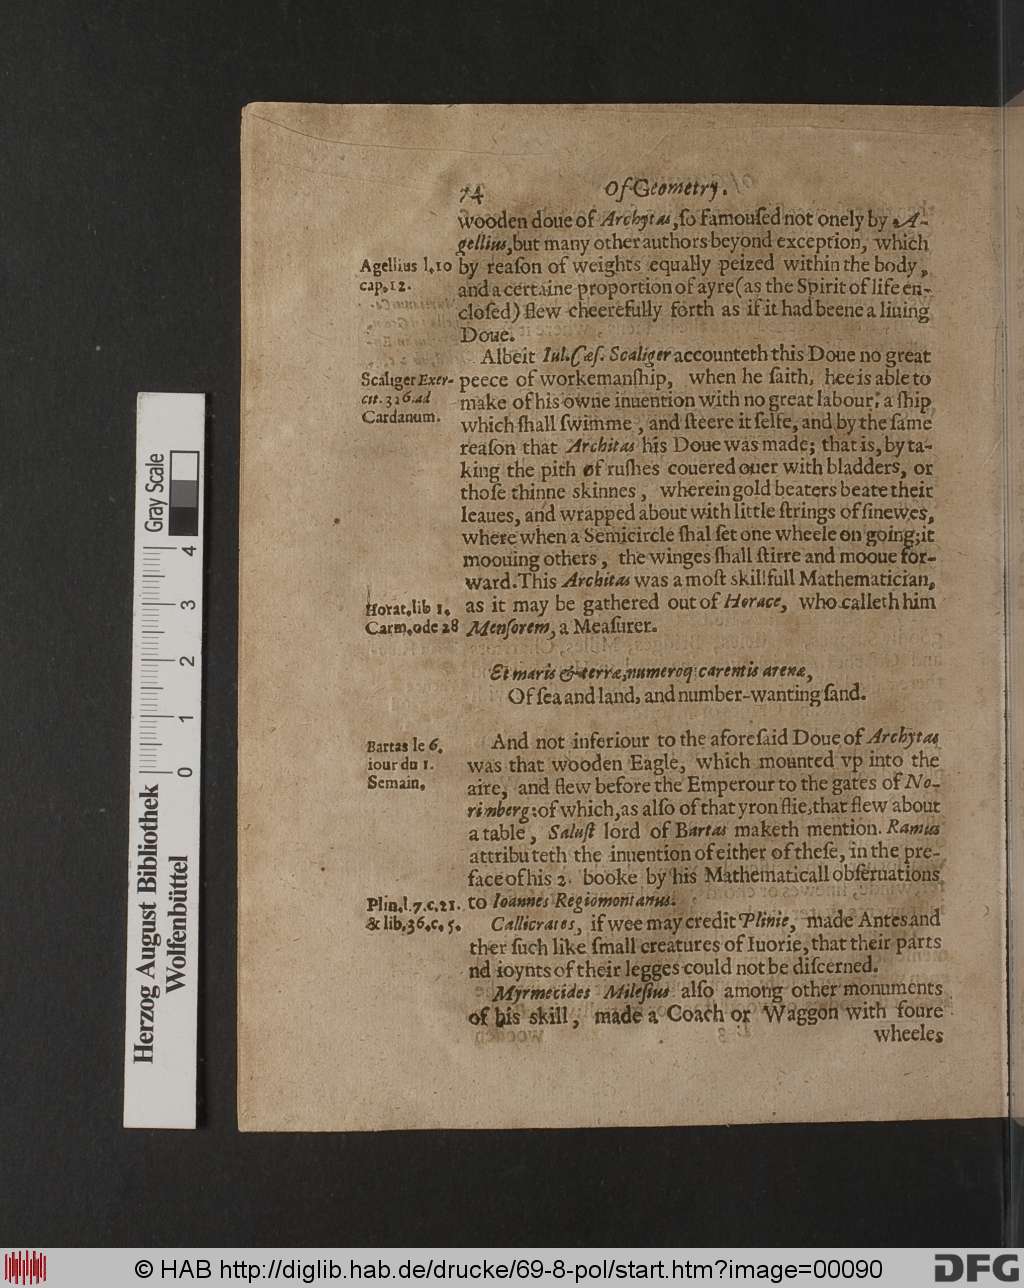 74 Of Geometry.
wooden doue of Archytas, ſo famouſed not onely by A-
gellius, but many other authors beyond exception, which
Agellius l.10
cap.12.
by reaſon of weights equally peized within the body,
and a certaine proportion of ayre (as the Spirit of life en-
cloſed) flew cheerefully forth as if it had beene a liuing
Doue.
Albeit Iul. Cæſ. Scaliger accounteth this Doue no great
Scaliger Exer-
cit. 326. ad
Cardanum.
peece of workemanſhip, when he ſaith, hee is able to
make of his owne inuention with no great labour, a ſhip
which ſhall ſwimme, and ſteere it ſelfe, and by the ſame
reaſon that Architas his Doue was made; that is, by ta-
king the pith of ruſhes couered ouer with bladders, or
thoſe thinne skinnes, wherein gold beaters beate their
leaues, and wrapped about with little ſtrings of ſinewes,
where when a Semicircle ſhal ſet one wheele on going, it
moouing others, the winges ſhall ſtirre and mooue for-
ward. This Architas was a moſt skillfull Mathematician,
Horat. lib 1.
Carm. ode 28
as it may be gathered out of Horace, who calleth him
Menſorem, a Meaſurer.
Et maris & terræ, numeroq; carentis arenæ,
Of ſea and land, and number-wanting ſand.
Bartas le 6.
iour du 1.
Semain.
And not inferiour to the aforeſaid Doue of Archytas
was that wooden Eagle, which mounted vp into the
aire, and flew before the Emperour to the gates of No-
rimberg: of which, as alſo of that yron flie, that flew about
a table, Saluſt lord of Bartas maketh mention. Ramus
attributeth the inuention of either of theſe, in the pre-
face of his 2. booke by his Mathematicall obſeruations
to Ioannes Regiomontanus.
Plin. l.7.c.21.
& lib.36.c.5.
Callicrates, if wee may credit Plinie, made Antes and
ther ſuch like ſmall creatures of Iuorie, that their parts
nd ioynts of their legges could not be diſcerned.
Myrmecides Mileſius alſo among other monuments
of his skill, made a Coach or Waggon with foure
wheeles
Gray Scale
0 1 2 3 4
Herzog August Bibliothek
Wolfenbüttel
© HAB http://diglib.hab.de/drucke/69-8-pol/start.htm?image=00090
DFG